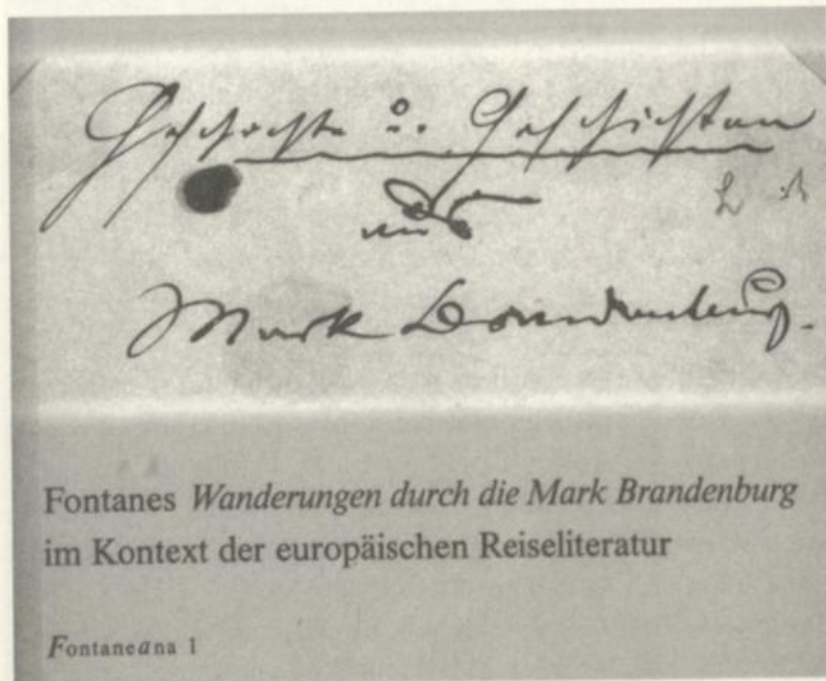 Geschichte u. Geschichten
aus
Mark Brandenburg.
Fontanes Wanderungen durch die Mark Brandenburg
im Kontext der europäischen Reiseliteratur
Fontaneana 1